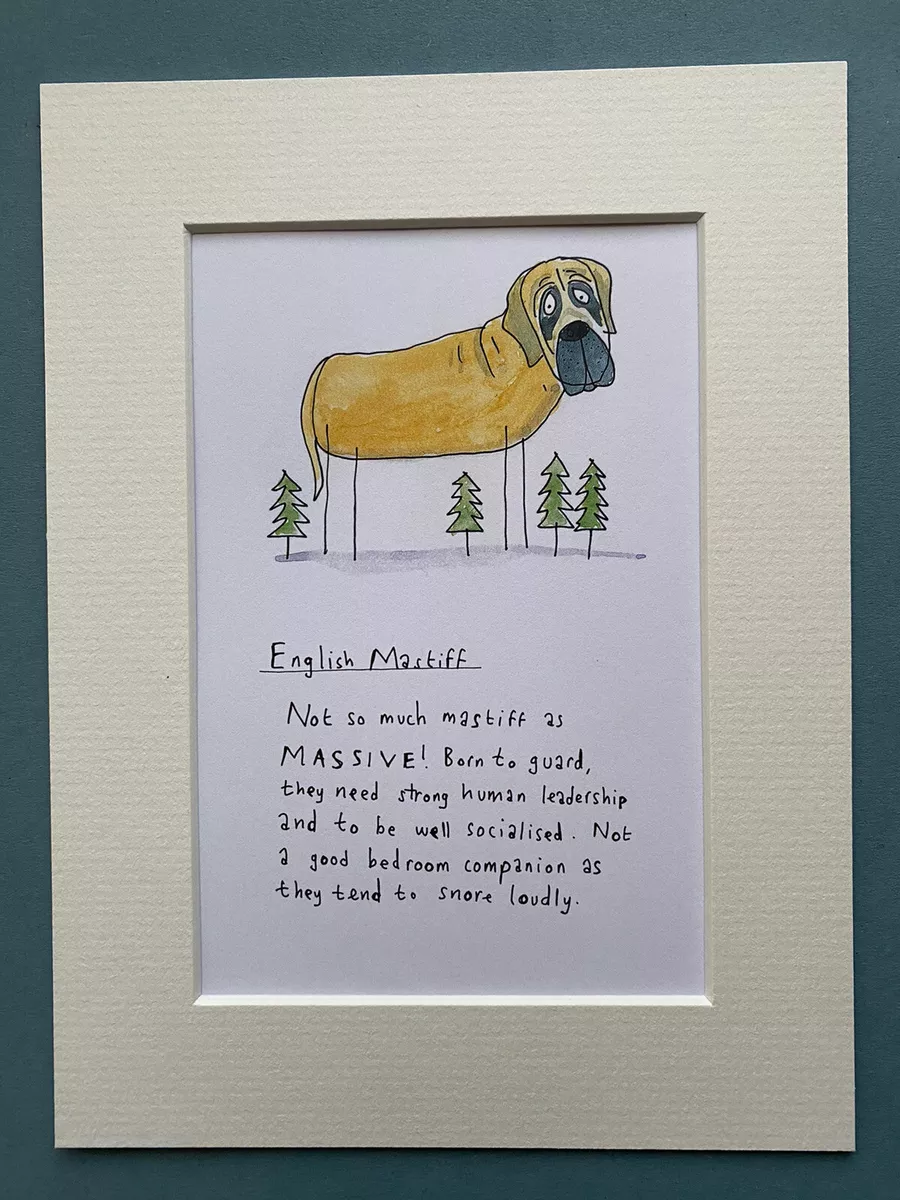 English Mastiff
Not so much mastiff as
MASSIVE! Born to guard,
they need strong human leadership
and to be well socialised. Not
a good bedroom companion as
they tend to snore loudly.